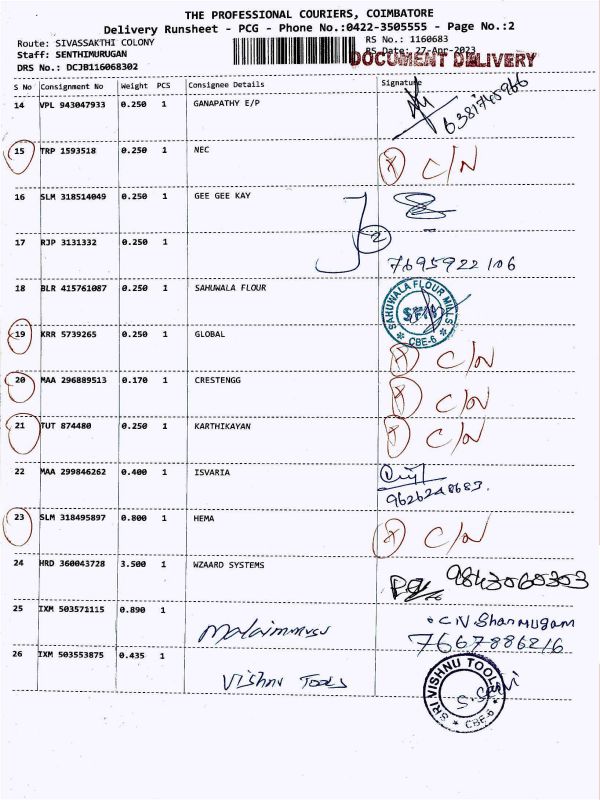 THE PROFESSIONAL COURIERS, COIMBATORE
Delivery Runsheet - PCG - Phone No.:0422-3505555 - Page No.:2
Route: SIVASSAKTHI COLONY RS No.: 1160683
Staff: SENTHIMURUGAN RS Date: 27-Apr-2023
DOCUMENT DELIVERY
DRS No.: DCJB116068302
S No Consignment No Weight PCS Consignee Details Signature
14 VPL 943047933 0.250 1 GANAPATHY E/P 6381745966
15 TRP 1593518 0.250 1 NEC C/N
16 SLM 318514049 0.250 1 GEE GEE KAY
2
17 RJP 3131332 0.250 1 7695922106
18 BLR 415761087 0.250 1 SAHUWALA FLOUR SAHUWALA FLOUR MILLS SFM CBE-6
19 KRR 5739265 0.250 1 GLOBAL C/N
20 MAA 296889513 0.170 1 CRESTENGG C/N
21 TUT 874480 0.250 1 KARTHIKAYAN C/N
22 MAA 299846262 0.400 1 ISVARIA 9626248683.
23 SLM 318495897 0.800 1 HEMA C/N
24 HRD 360043728 3.500 1 WZAARD SYSTEMS 9843065303
25 IXM 503571115 0.890 1 C/N Shanmugam
7667886216
26 IXM 503553875 0.435 1 Vishnu Tools SRI VISHNU TOOLS CBE-6